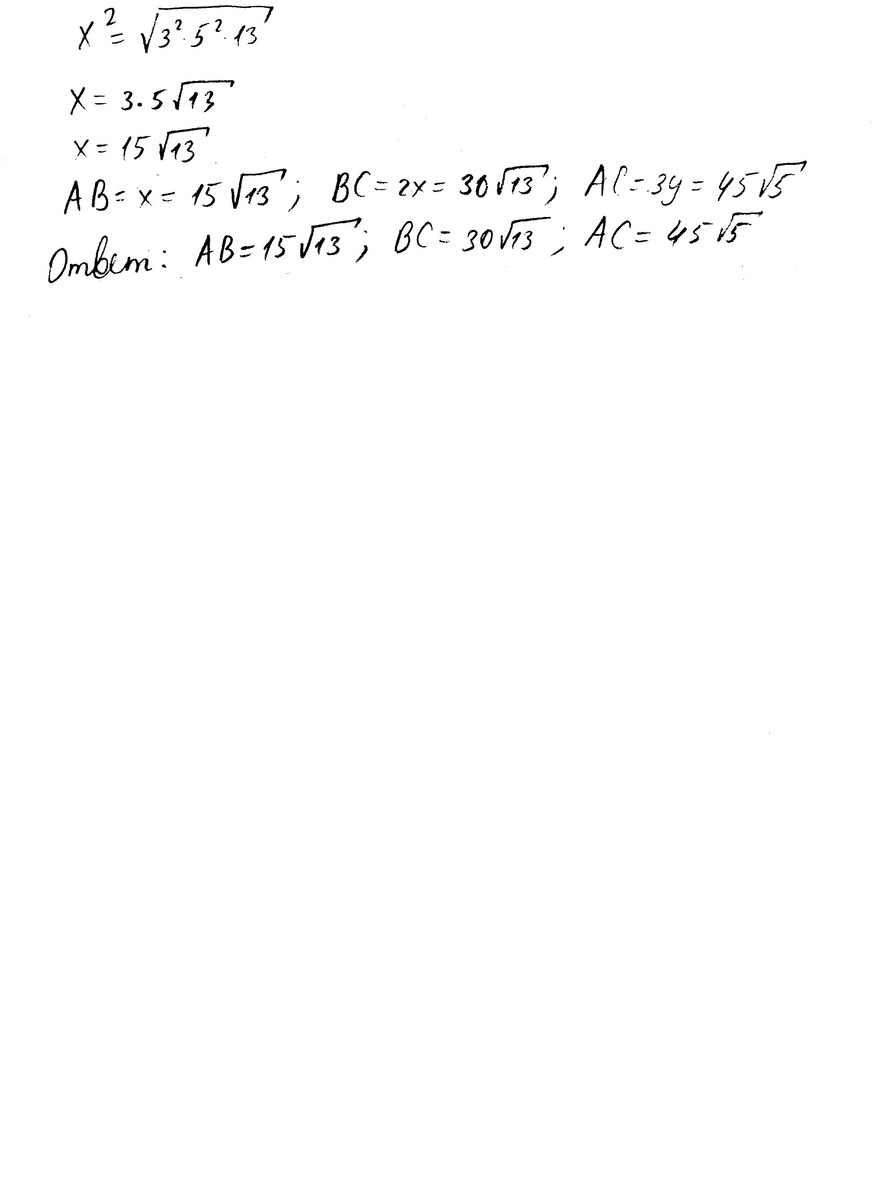 x² = √3²·5²·13
x = 3·5√13
x = 15√13
AB = x = 15√13; BC = 2x = 30√13; AC = 3y = 45√5
Ответ: AB = 15√13; BC = 30√13; AC = 45√5